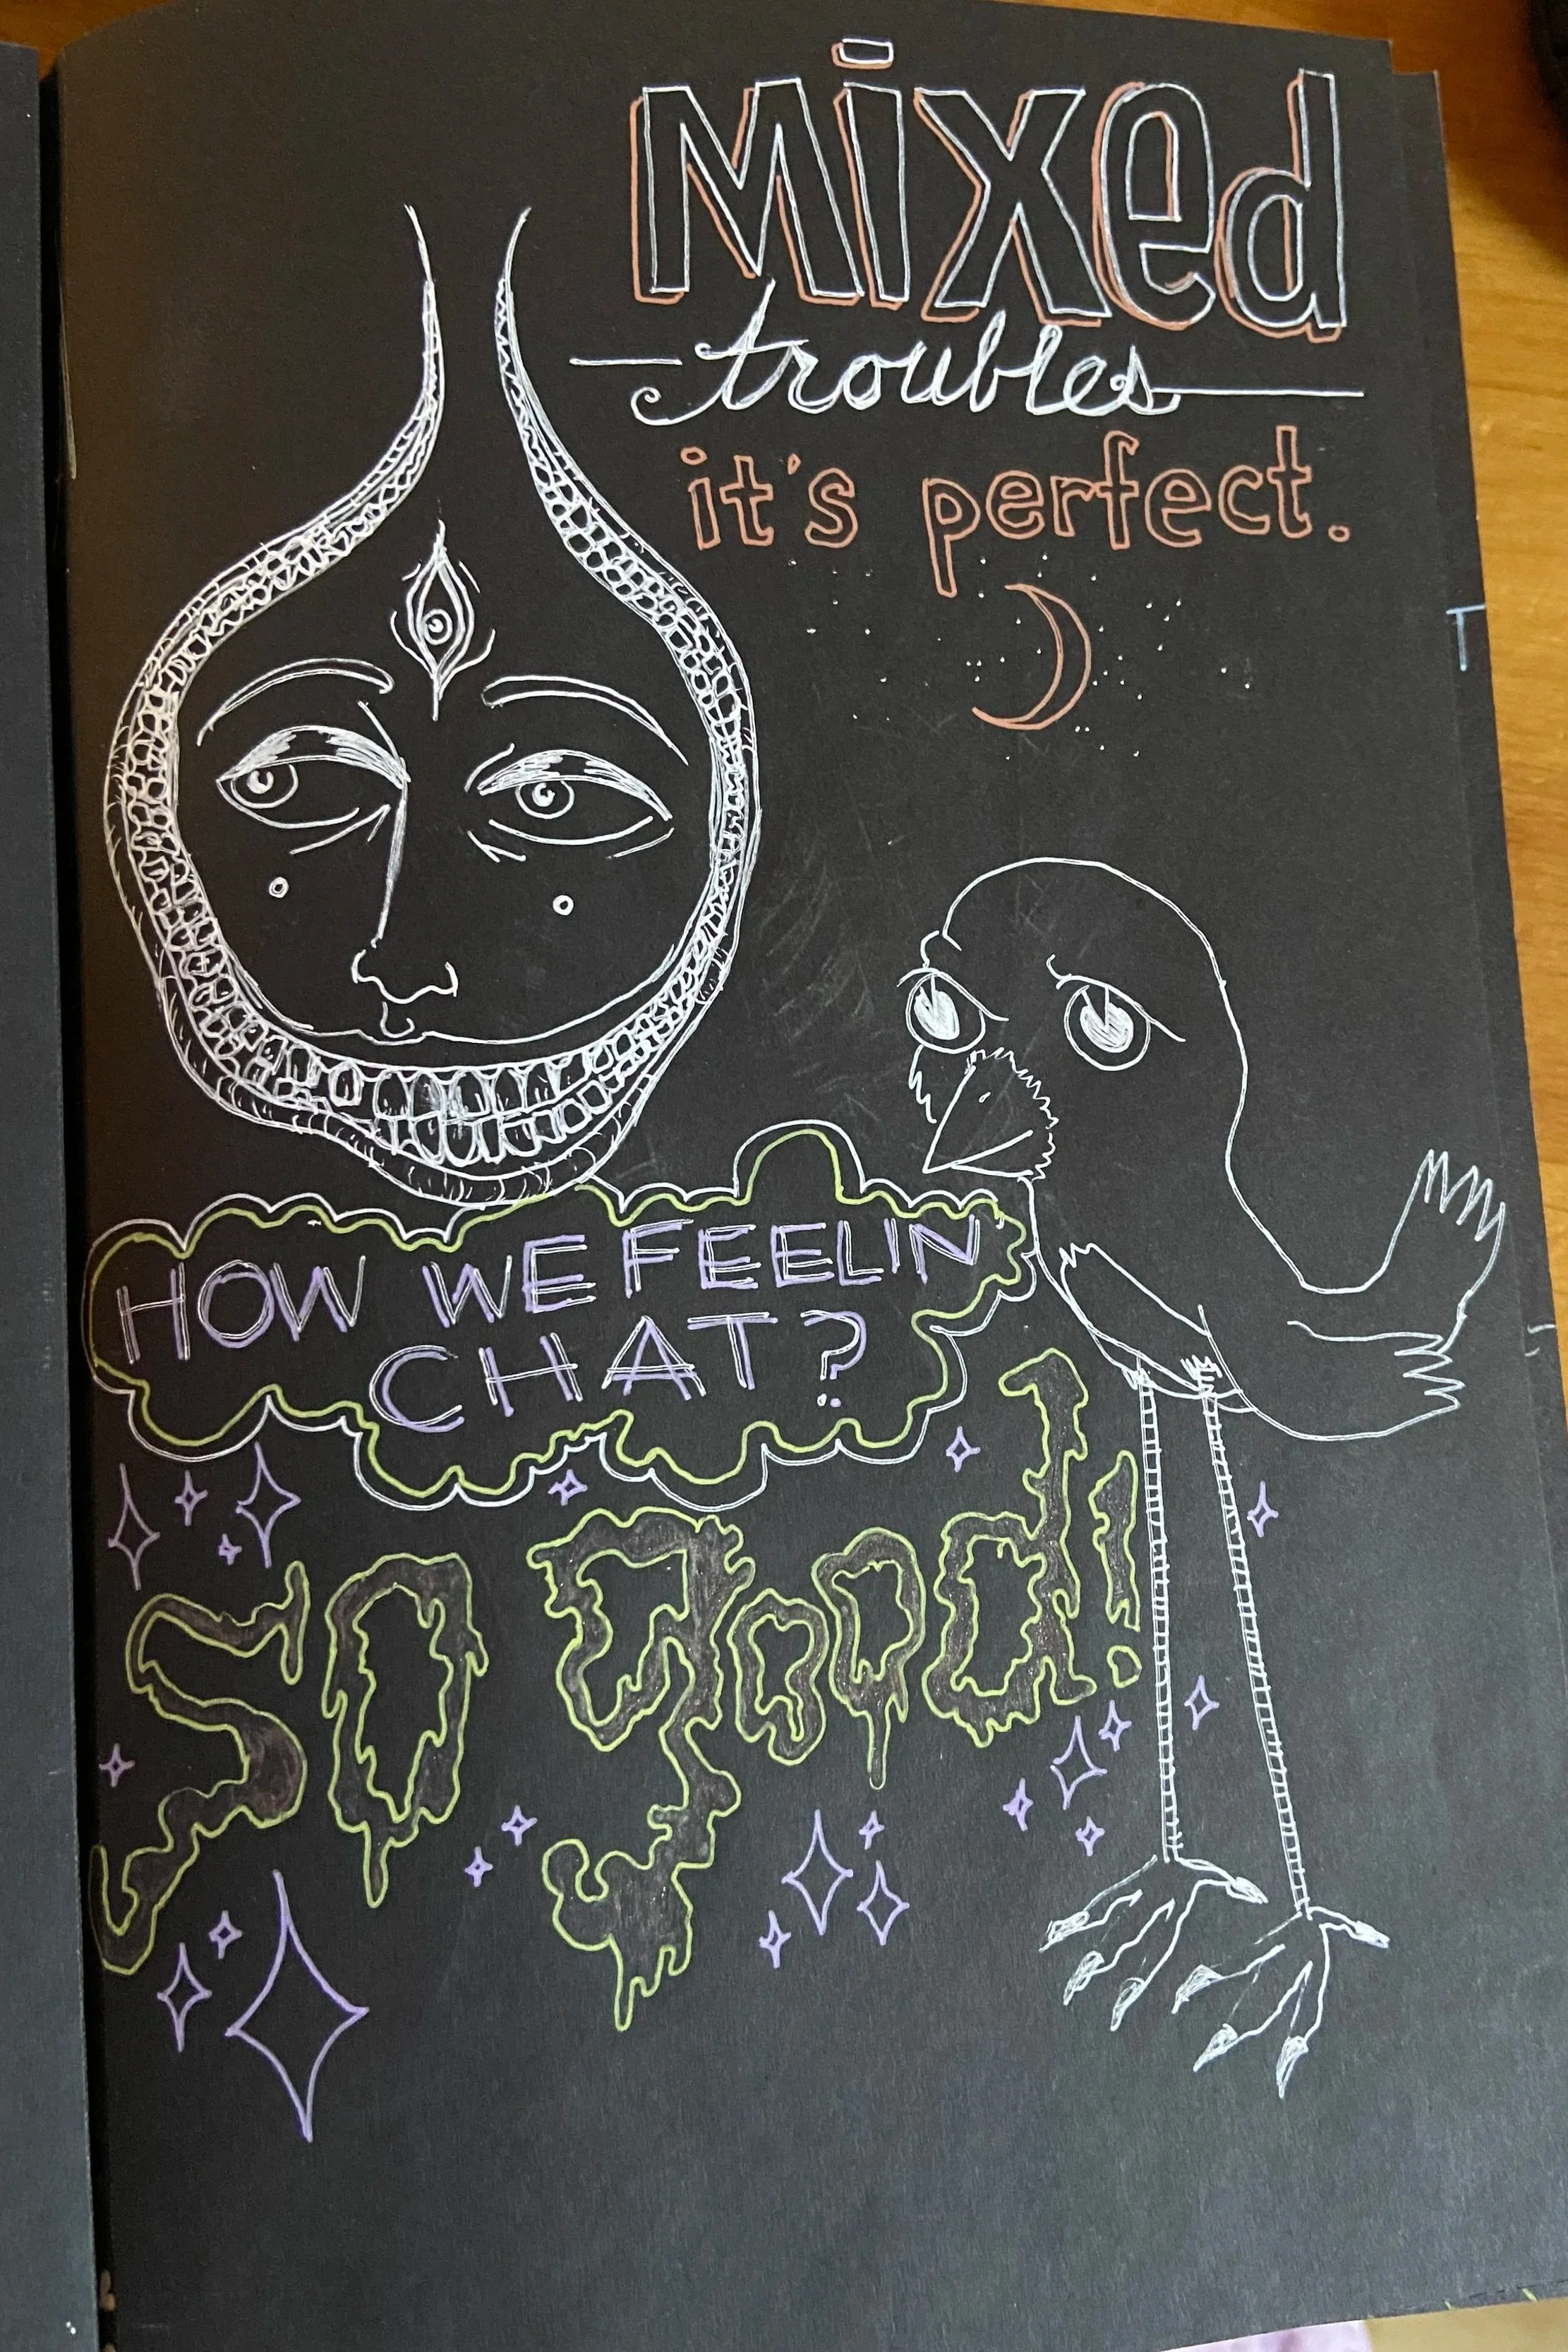 Mixed
troubles
it's perfect.
HOW WE FEELIN
CHAT?
so good!
T